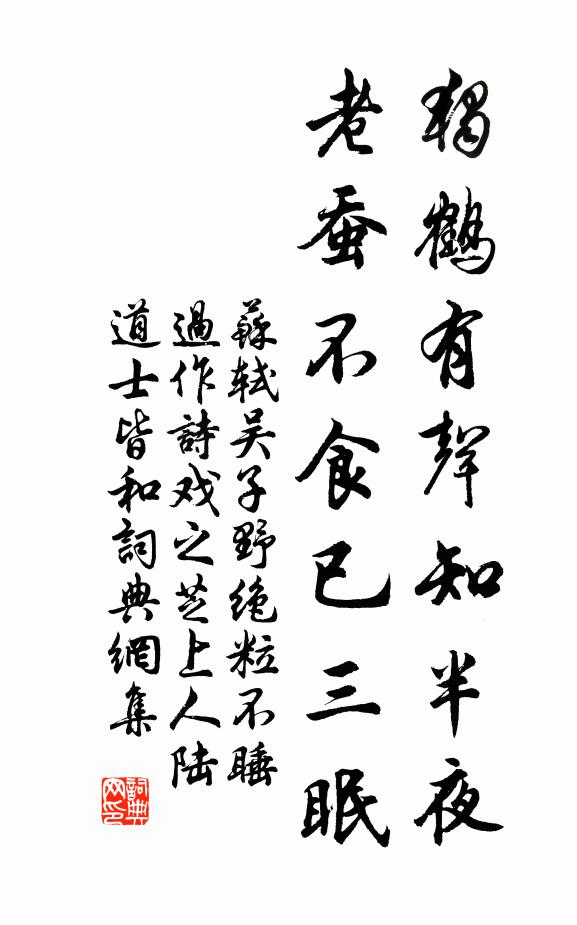 獨鶴有聲知半夜
老蚕不食已三眠
蘇軾吴子野绝粒不睡
過作詩戏之芝上人陆
道士皆和詞典網集
詞典
网印